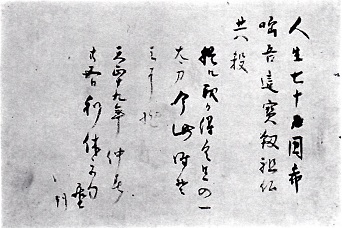 人生七十力囲希
咄吾這寳剱祖仏
共殺
提ル我得具足の一
太刀今此時そ
天に抛
天正十九年 仲春
廿五日 利休宗易